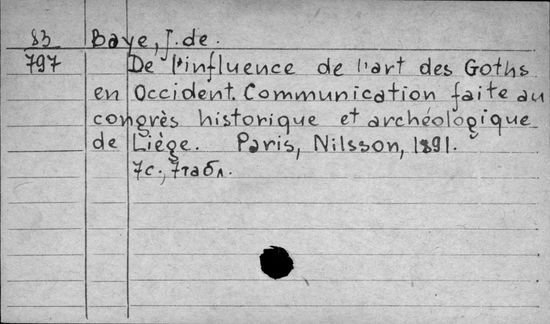 83 Baye, J. de.
797 De l'influence de l'art des Goths
en Occident. Communication faite au
congrès historique et archéologique
de Liège. Paris, Nilsson, 1891.
7с., 7табл.